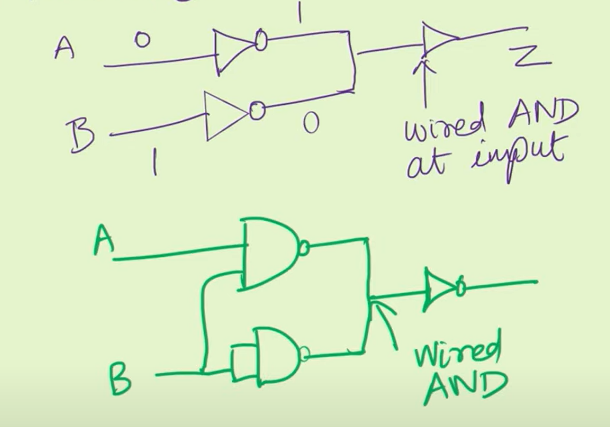 1
A 0
Z
B 0
1
wired AND
at input
A
B
Wired
AND